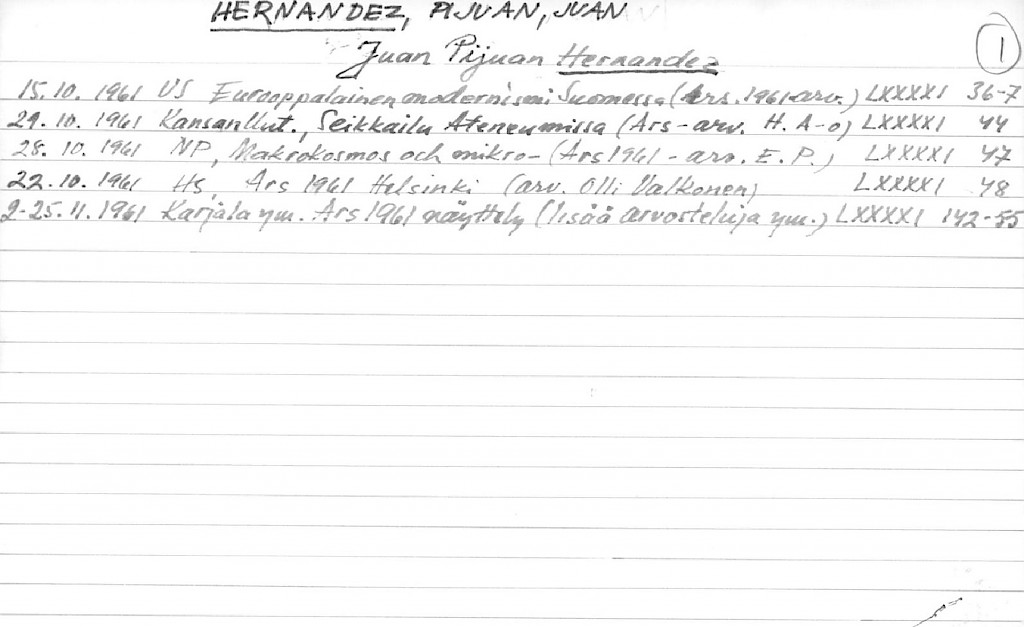 HERNANDEZ, PIJUAN, JUAN
Juan Pijuan Hernandez
1
15.10. 1961 US Eurooppalainen modernismi Suomessa (Ars. 1961-arv.) LXXXXI 36-7
29.10. 1961 Kansan Uut., Seikkailu Ateneumissa (Ars-arv. H. A-o) LXXXXI 44
28.10. 1961 NP, Makrokosmos och mikro- (Ars 1961 - arv. E. P.) LXXXXI 47
22.10. 1961 HS, Ars 1961 Helsinki (arv. Olli Valkonen) LXXXXI 48
2-25.11.1961 Karjala ym. Ars 1961 näyttely (lisää arvosteluja ym.) LXXXXI 142-55